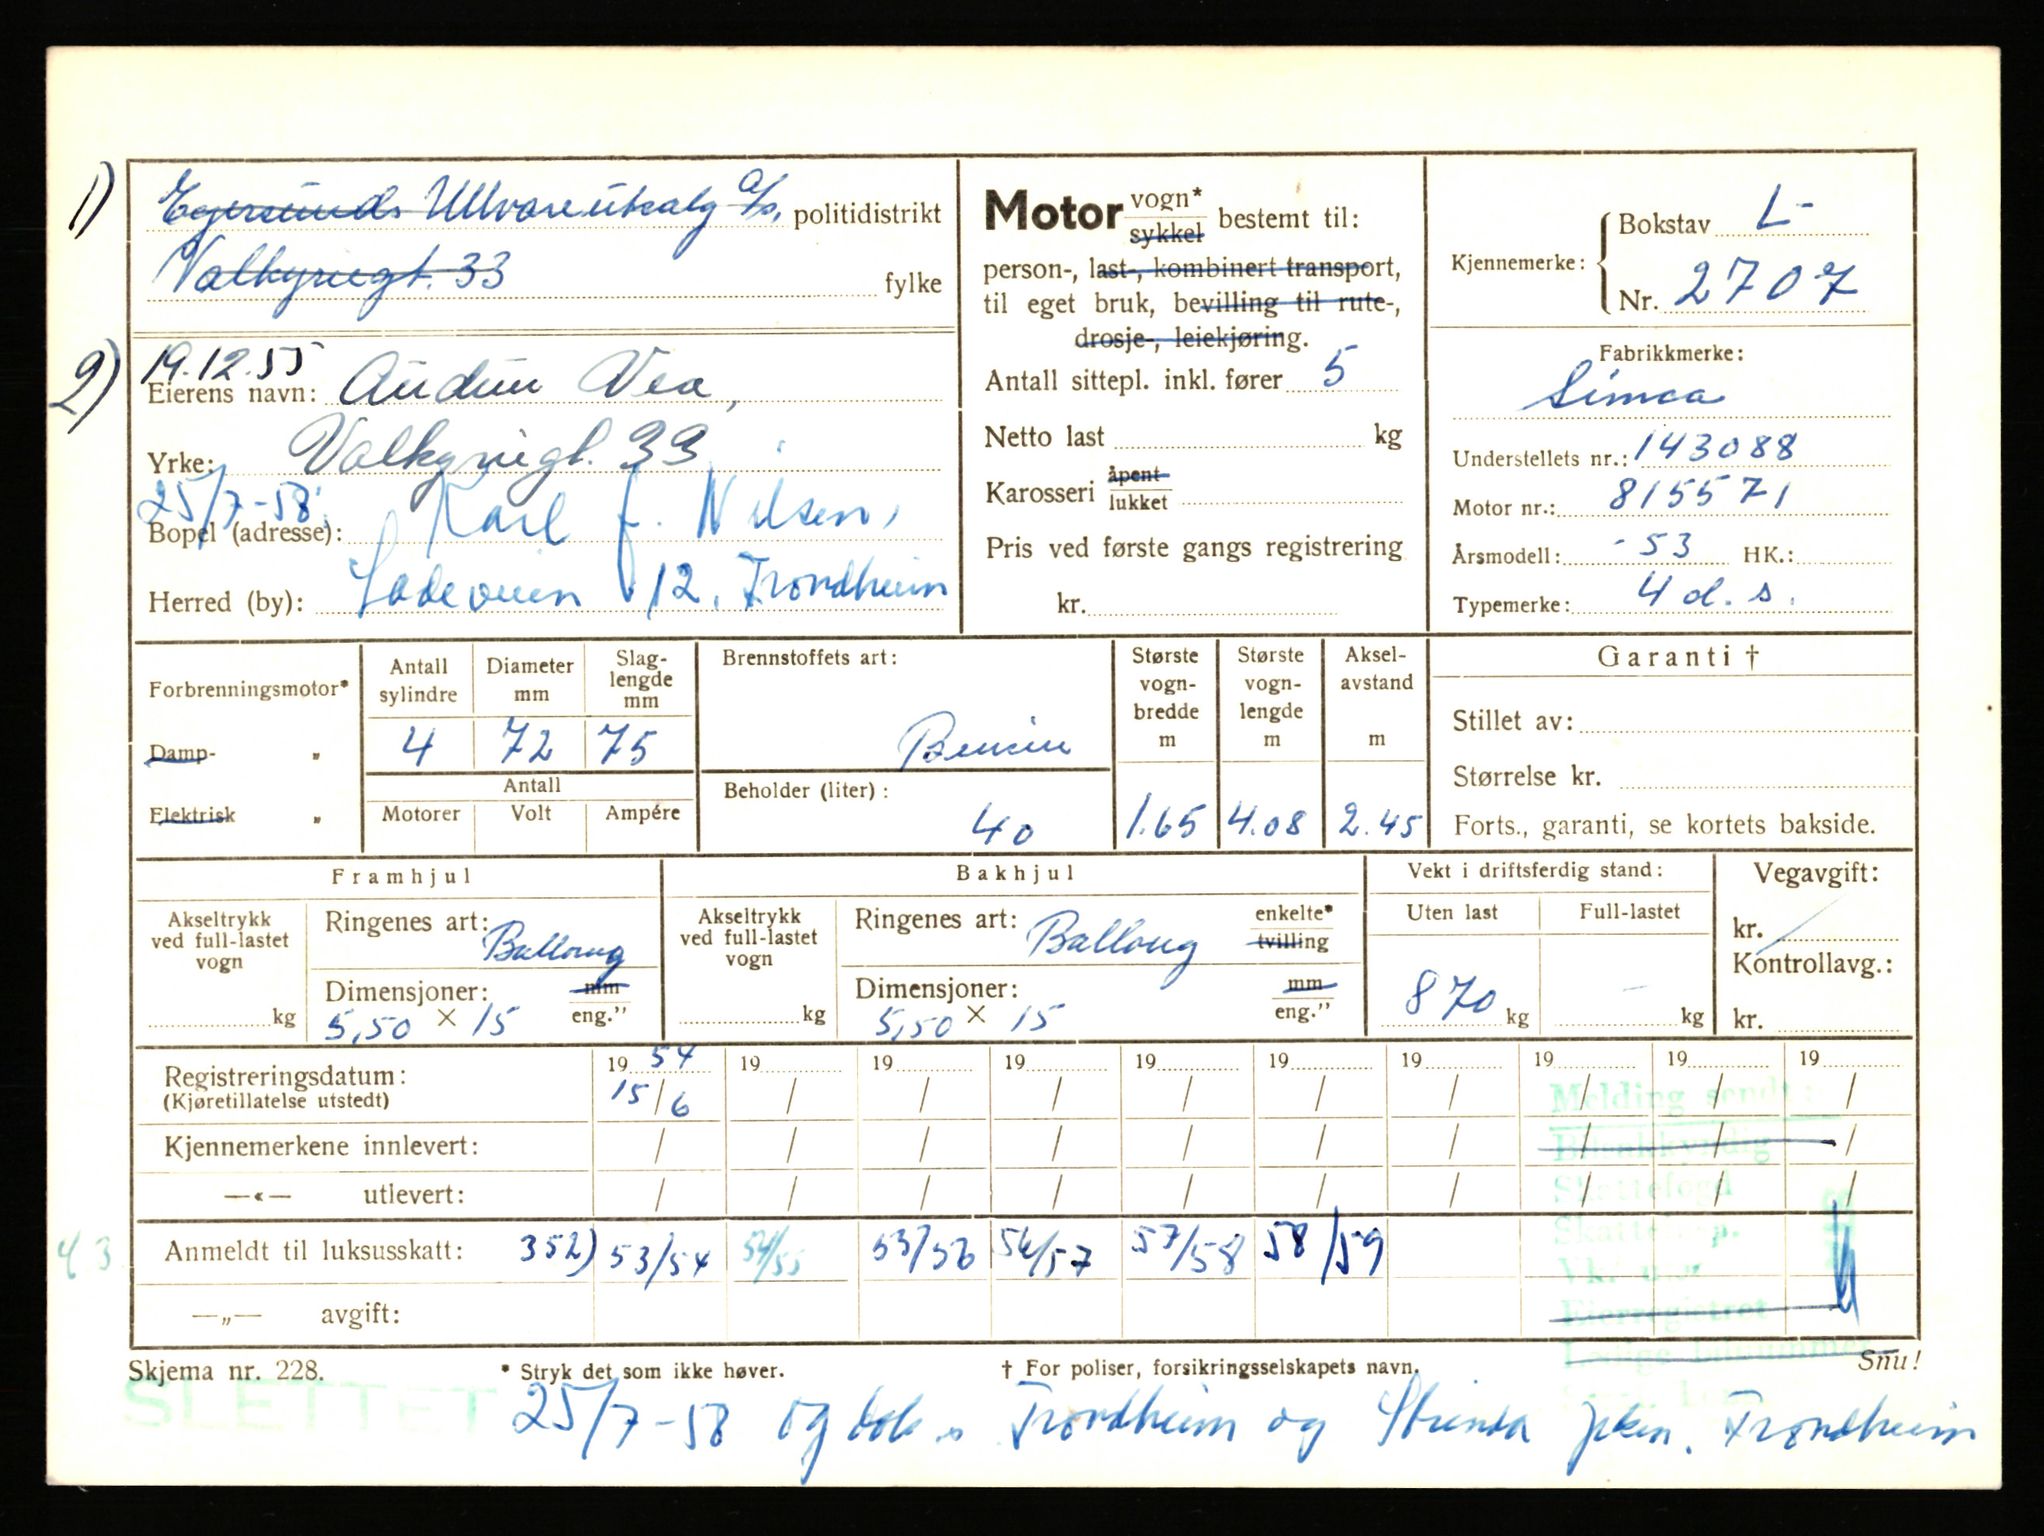 1) Egersunds Ullvareutsalg a/s, politidistrikt
Valkyriegt. 33 fylke
2) 19.12.55
Eierens navn: Audun Vea,
Yrke: Valkyriegt. 33
25/7-58
Bopel (adresse): Karl J. Nilsen,
Herred (by): Ladeveien 12, Trondheim
Motor vogn* sykkel bestemt til:
person-, last-, kombinert transport,
til eget bruk, bevilling til rute-,
drosje-, leiekjøring.
Antall sittepl. inkl. fører 5
Netto last kg
Karosseri åpent lukket
Pris ved første gangs registrering
kr.
Kjennemerke: Bokstav L-
Nr. 2707
Fabrikkmerke:
Simca
Understellets nr.: 143088
Motor nr.: 815571
Årsmodell: -53 HK.:
Typemerke: 4 d. s.
Forbrenningsmotor*
Damp- „
Elektrisk „
Antall sylindre
4
Diameter mm
72
Slag-
lengde
mm
75
Antall
Motorer Volt Ampére
Brennstoffets art:
Bensin
Beholder (liter):
40
Største
vogn-
bredde
m
1.65
Største
vogn-
lengde
m
4.08
Aksel-
avstand
m
2.45
Garanti †
Stillet av:
Størrelse kr.
Forts., garanti, se kortets bakside.
Framhjul
Akseltrykk
ved full-lastet
vogn
kg
Ringenes art: Ballong
Dimensjoner: mm
5,50 × 15 eng.”
Bakhjul
Akseltrykk
ved full-lastet
vogn
kg
Ringenes art: Ballong enkelte* tvilling
Dimensjoner: mm
5,50 × 15 eng.”
Vekt i driftsferdig stand:
Uten last Full-lastet
870 kg – kg
Vegavgift:
kr.
Kontrollavg.:
kr.
Registreringsdatum: 19 54 19 19 19 19 19 19 19 19 19
(Kjøretillatelse utstedt) 15/6 / / / / / / / / /
Kjennemerkene innlevert: / / / / / / / / / /
—«— utlevert: / / / / / / / / / /
43 Anmeldt til luksusskatt: 352) 53/54 54/55 55/56 56/57 57/58 58/59
—„— avgift:
Melding sendt:
Skattefogd
Eierregistret
Skjema nr. 228. * Stryk det som ikke høver. † For poliser, forsikringsselskapets navn. Snu!
SLETTET
25/7-58 og Trondheim og Strinda Trondheim